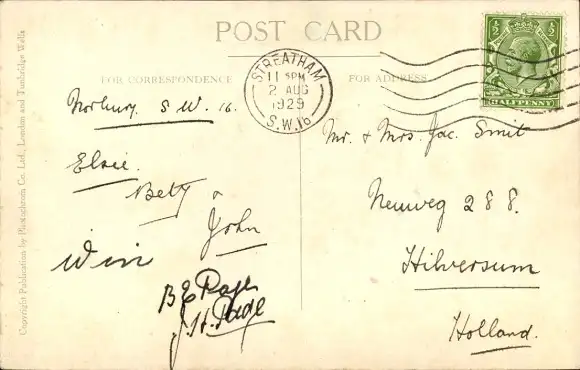 POST CARD
FOR CORRESPONDENCE
FOR ADDRESS
STREATHAM
11 15PM
2 AUG
1929
S.W.16
½ ½
HALFPENNY
Norbury. S.W. 16.
Elsie.
Betty &
John
Win
B E Page
J. H. Page
Mr. & Mrs. Jac. Smit
Neuweg 288.
Hilversum
Holland.
Copyright Publication by Photochrom Co. Ltd., London and Tunbridge Wells